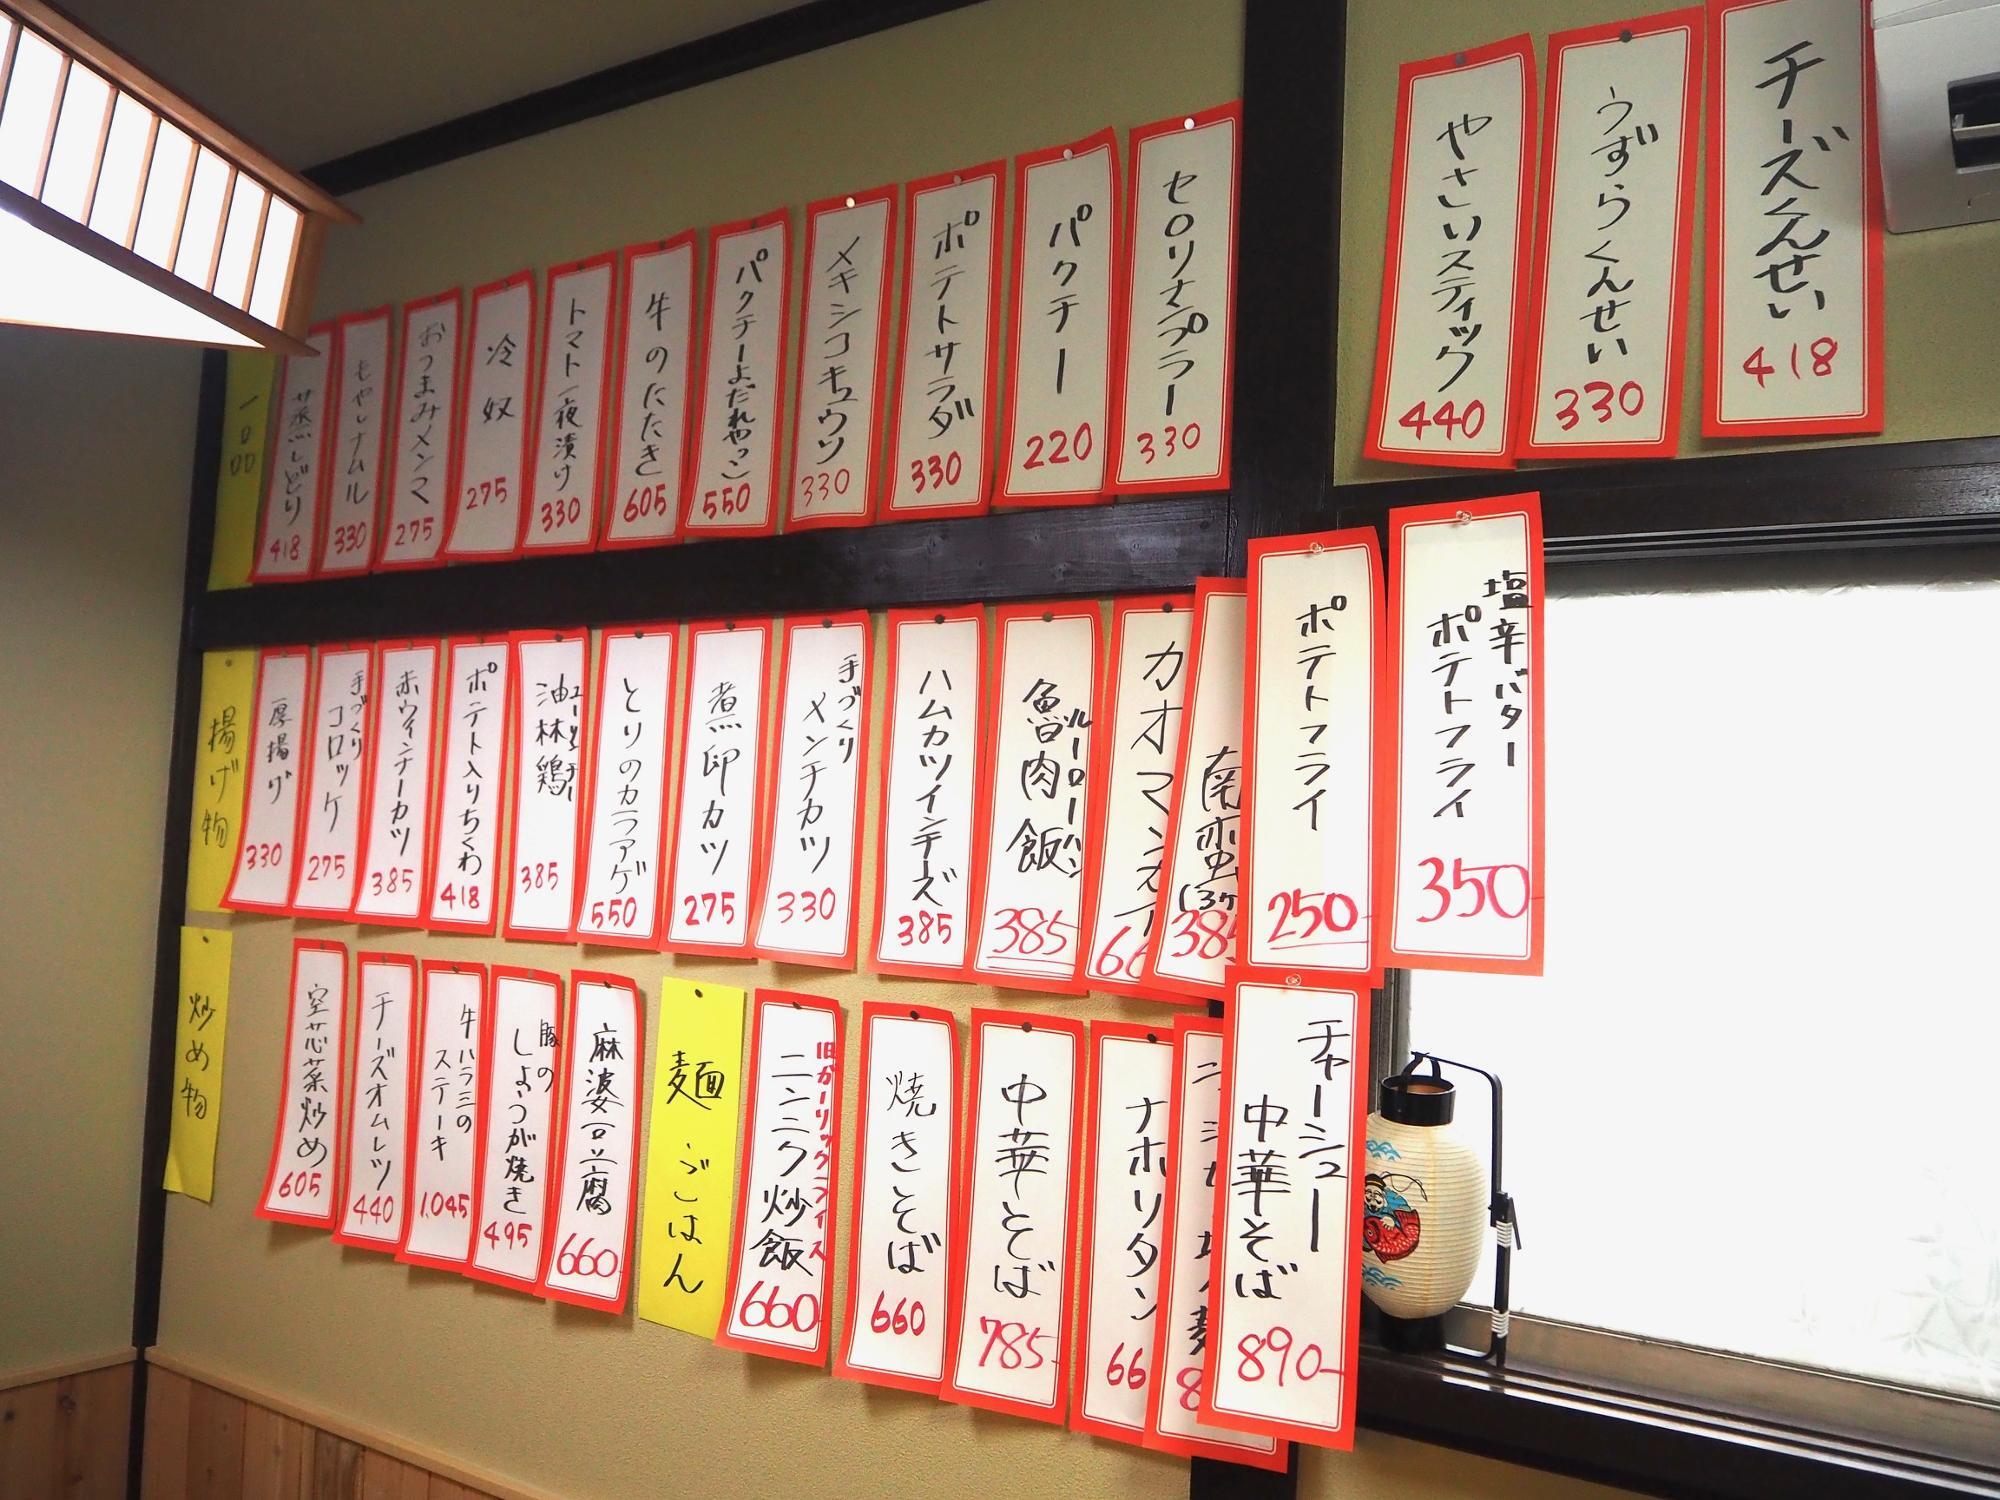 一品
蒸しどり
418
もやしナムル
330
おつまみメンマ
275
冷奴
275
トマト一夜漬け
330
牛のたたき
605
パクチーよだれやっこ
550
メキシコキュウリ
330
ポテトサラダ
330
パクチー
220
セロリナンプラー
330
やさいスティック
440
うずらくんせい
330
チーズくんせい
418
揚げ物
厚揚げ
330
手づくり
コロッケ
275
赤ウィンナーカツ
385
ポテト入りちくわ
418
油林鶏
ユーリンチー
385
とりのカラアゲ
550
煮卵カツ
275
手づくり
メンチカツ
330
ハムカツインチーズ
385
魯肉飯
ルーローハン
385
カオマンガイ
66
南蛮
(3ヶ
385
ポテトフライ
250
塩辛バター
ポテトフライ
350
炒め物
空芯菜炒め
605
チーズオムレツ
440
牛ハラミの
ステーキ
1,045
豚の
しょうが焼き
495
麻婆豆腐
660
麺 ごはん
旧ガーリックライス
ニンニク炒飯
660
焼きそば
660
中華そば
785-
ナポリタン
66
8
チャーシュー
中華そば
890-